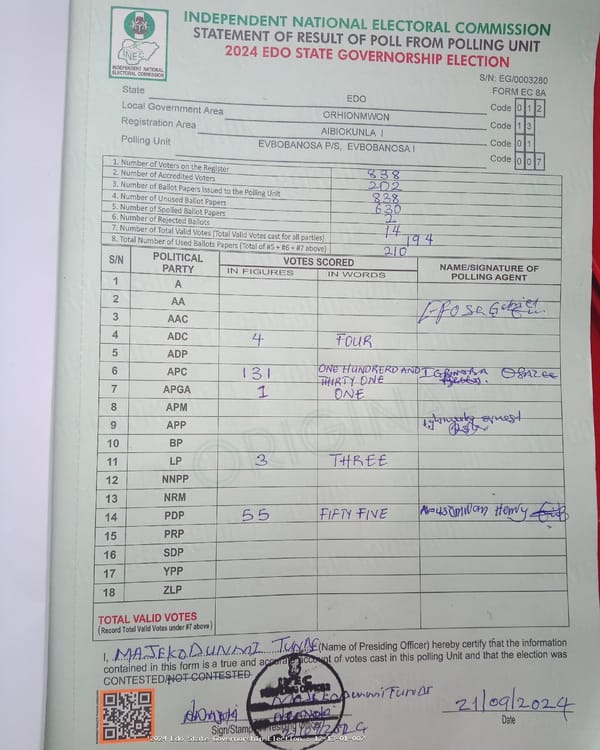 INEC
INDEPENDENT NATIONAL
ELECTORAL COMMISSION
INDEPENDENT NATIONAL ELECTORAL COMMISSION
STATEMENT OF RESULT OF POLL FROM POLLING UNIT
2024 EDO STATE GOVERNORSHIP ELECTION
S/N: EG/0003280
FORM EC 8A
State EDO Code 0 1 2
Local Government Area ORHIONMWON Code 1 3
Registration Area AIBIOKUNLA I Code 0 1
Polling Unit EVBOBANOSA P/S, EVBOBANOSA I Code 0 0 7
1. Number of Voters on the Register 838
2. Number of Accredited Voters 202
3. Number of Ballot Papers Issued to the Polling Unit 838
4. Number of Unused Ballot Papers 630
5. Number of Spoiled Ballot Papers 2
6. Number of Rejected Ballots 14
7. Number of Total Valid Votes (Total Valid Votes cast for all parties) 194
8. Total Number of Used Ballots Papers (Total of #5 + #6 + #7 above) 210
S/N POLITICAL PARTY VOTES SCORED NAME/SIGNATURE OF POLLING AGENT
IN FIGURES IN WORDS
1 A
2 AA
3 AAC
4 ADC 4 FOUR
5 ADP
6 APC 131 ONE HUNDERD AND THIRTY ONE
7 APGA 1 ONE
8 APM
9 APP
10 BP
11 LP 3 THREE
12 NNPP
13 NRM
14 PDP 55 FIFTY FIVE Henry
15 PRP
16 SDP
17 YPP
18 ZLP
ORIGINAL
TOTAL VALID VOTES
(Record Total Valid Votes under #7 above)
I, MAJEKODUNMI TUNDE (Name of Presiding Officer) hereby certify that the information
contained in this form is a true and accurate account of votes cast in this polling Unit and that the election was
CONTESTED/NOT CONTESTED
INEC
21/09/2024
Sign/Stamp Date
2024 Edo State Governorship Election